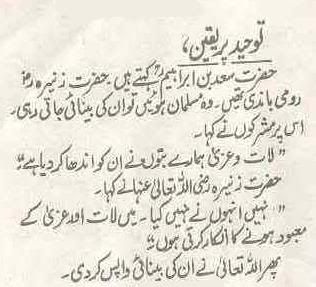 توحید پر یقین،
حضرت سعد بن ابراہیمؒ کہتے ہیں حضرت زنیرہ رضؓ
رومی باندی تھیں۔ وہ مسلمان ہوئیں تو ان کی بینائی جاتی رہی۔
اس پر مشرکوں نے کہا۔
”لات و عزیٰ ہمارے بتوں نے ان کو اندھا کر دیا ہے“
حضرت زنیرہ رضی اللہ تعالیٰ عنہا نے کہا۔
”نہیں انہوں نے نہیں کیا۔ میں لات اور عزیٰ کے
معبود ہونے کا انکار کرتی ہوں“
پھر اللہ تعالیٰ نے ان کی بینائی واپس کر دی۔